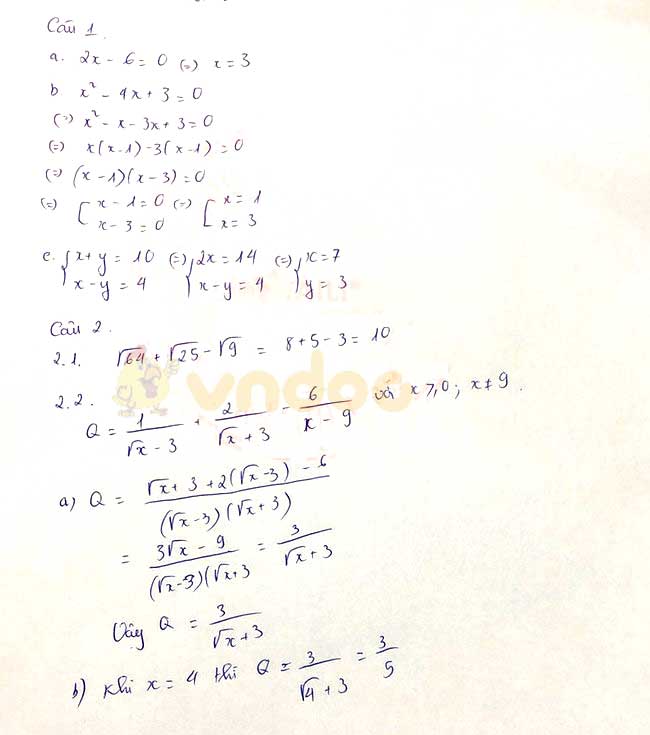 Câu 1.
a. 2x - 6 = 0 (=) x = 3
b x² - 4x + 3 = 0
(=) x² - x - 3x + 3 = 0
(=) x(x-1) - 3(x-1) = 0
(=) (x-1)(x-3) = 0
(=) [ x - 1 = 0 (=) [ x = 1
x - 3 = 0 x = 3
c. { x + y = 10 (=) { 2x = 14 (=) { x = 7
x - y = 4 x - y = 4 y = 3
Câu 2.
2.1. √64 + √25 - √9 = 8 + 5 - 3 = 10
2.2.
Q = 1/(√x - 3) + 2/(√x + 3) - 6/(x - 9) và x ⩾ 0 ; x ≠ 9.
a) Q = (√x + 3 + 2(√x - 3) - 6)/((√x - 3)(√x + 3))
= (3√x - 9)/((√x - 3)(√x + 3) = 3/(√x + 3)
Vậy Q = 3/(√x + 3)
b) Khi x = 4 thì Q = 3/(√4 + 3) = 3/5
vndoc